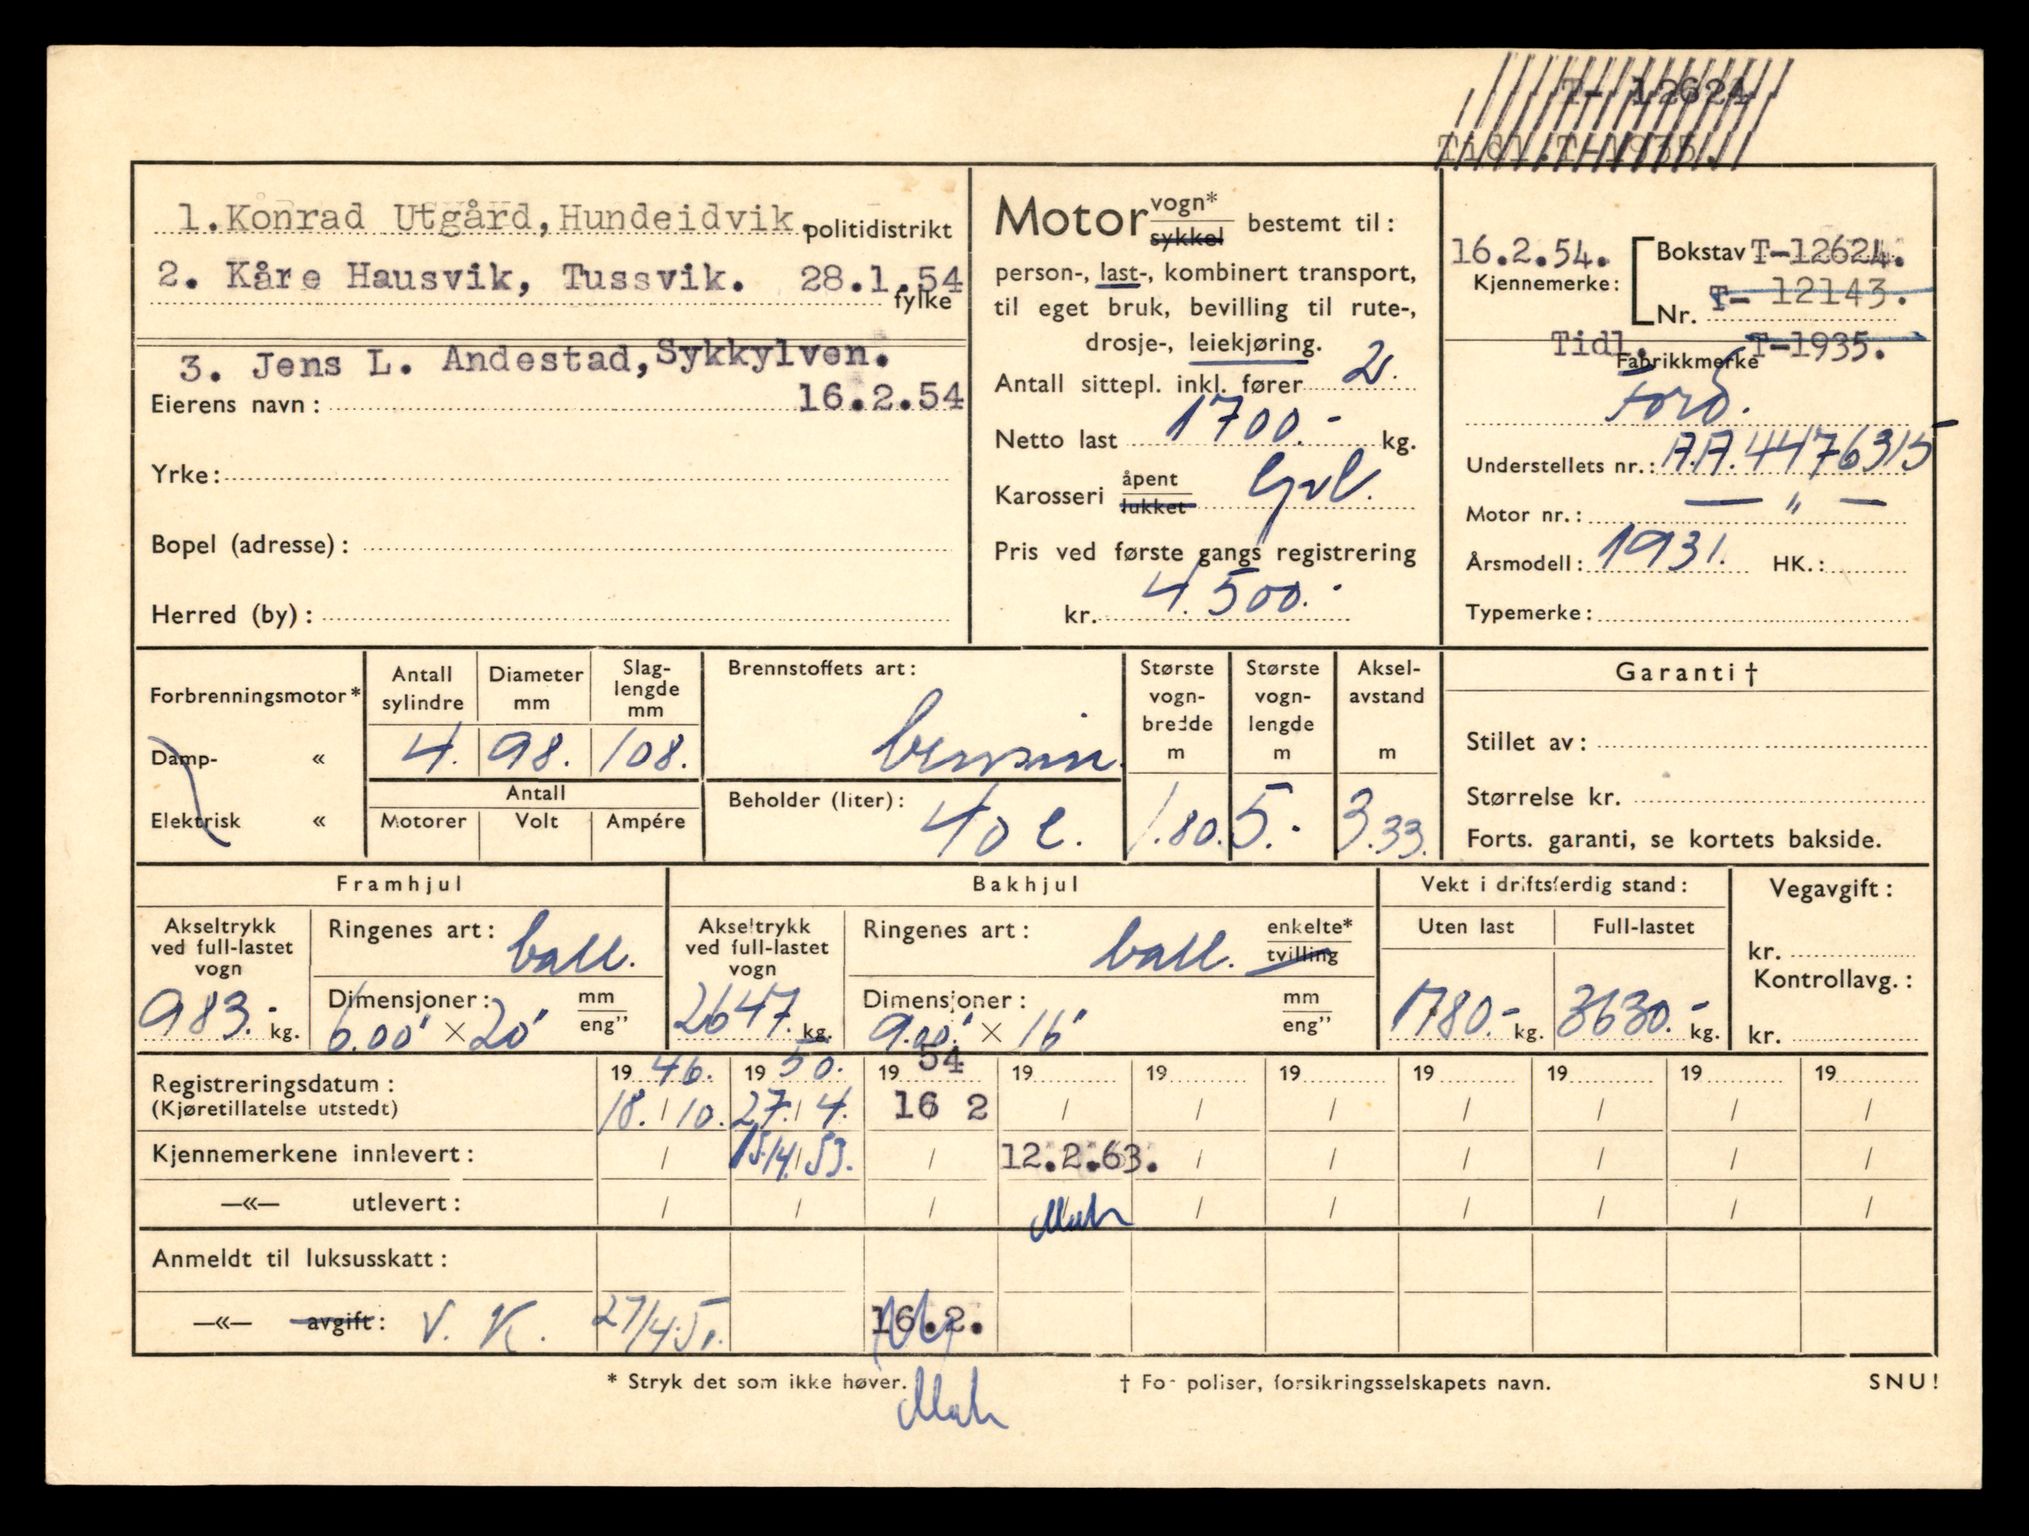 T- 12624
Tidl.T-1935.
1.Konrad Utgård,Hundeidvik. politidistrikt
2. Kåre Hausvik, Tussvik. 28.1.54
fylke
3. Jens L. Andestad,Sykkylven.
16.2.54
Eierens navn:
Yrke:
Bopel (adresse):
Herred (by):
Motor vogn* sykkel bestemt til:
person-, last-, kombinert transport,
til eget bruk, bevilling til rute-,
drosje-, leiekjøring.
Antall sittepl. inkl. fører 2.
Netto last 1700.- kg.
Karosseri åpent lukket
Pris ved første gangs registrering
kr. 4.500.-
16.2.54. Bokstav T-12624.
Kjennemerke: T- 12143.
Nr.
Tidl. T-1935.
Fabrikkmerke
Ford.
Understellets nr.: A.A.4476315
Motor nr.: — " —
Årsmodell: 1931. HK.:
Typemerke:
Forbrenningsmotor*
Damp- «
Elektrisk «
Antall sylindre
Diameter mm
Slag-lengde mm
4. 98. 108.
Antall
Motorer Volt Ampére
Brennstoffets art:
bensin.
Beholder (liter):
40 l.
Største vogn-bredde m
Største vogn-lengde m
Aksel-avstand m
1.80. 5. 3.33.
Garanti †
Stillet av:
Størrelse kr.
Forts. garanti, se kortets bakside.
Framhjul
Akseltrykk ved full-lastet vogn
983.- kg.
Ringenes art: ball.
Dimensjoner: mm eng"
6.00" × 20"
Bakhjul
Akseltrykk ved full-lastet vogn
2647. kg.
Ringenes art: ball. enkelte* tvilling
Dimensjoner: mm eng"
9.00" × 16"
Vekt i driftsferdig stand:
Uten last Full-lastet
1780.- kg. 3630.- kg.
Vegavgift:
kr.
Kontrollavg.:
kr.
Registreringsdatum: 19 46. 19 50. 19 54 19 19 19 19 19 19 19
(Kjøretillatelse utstedt) 18. / 10. 27. / 4. 16 2 / / / / / / /
Kjennemerkene innlevert: / 15/4. 53. / 12.2.63. / / / / / /
—«— utlevert: / / / / / / / / /
Anmeldt til luksusskatt:
—«— avgift: V. K. 27/4.51. 16.2.
* Stryk det som ikke høver. † For poliser, forsikringsselskapets navn. SNU!